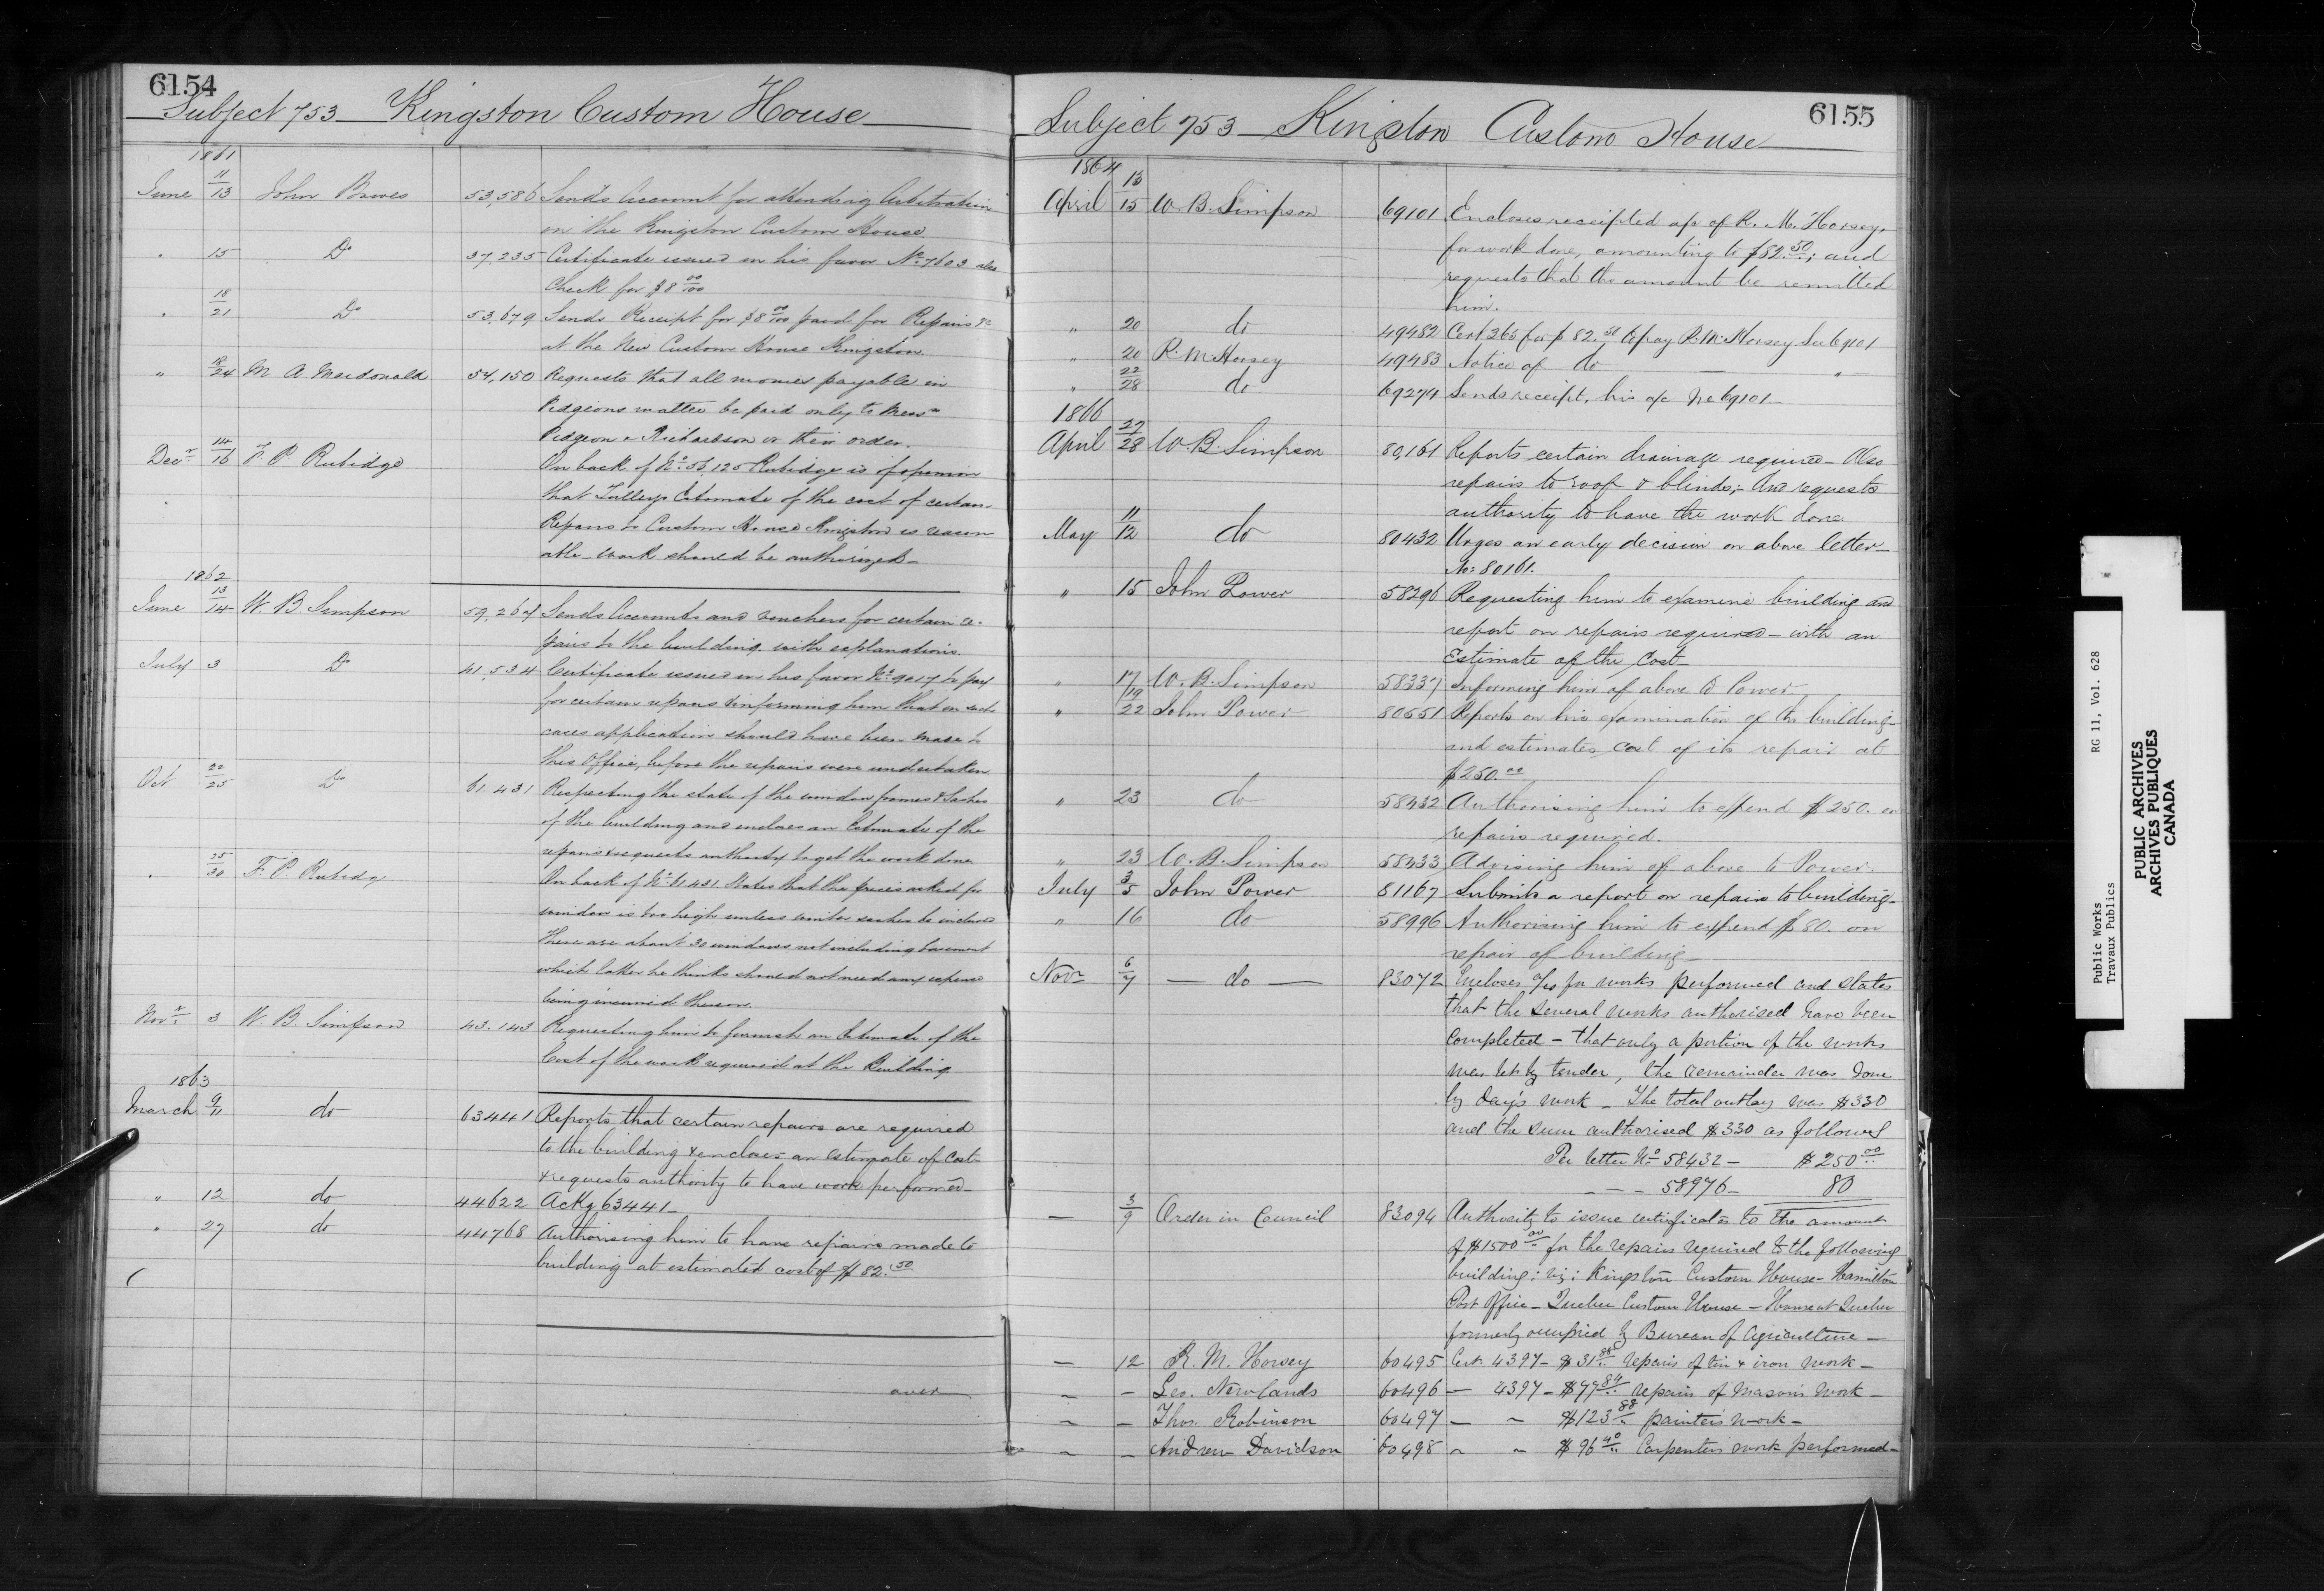 6154
Subject 753 Kingston Custom House
1861
June 11/13 John Bowes 53,586 Sends Account for attending Arbitration
on the Kingston Custom House
" 15 Do 37,235 Certificate issued in his favor No 7603 also
Check for $8 00/100
" 18/21 Do 53,679 Sends Receipt for $8 00/100 paid for Repairs &c
at the New Custom House Kingston.
" 24 M A Macdonald 54,150 Requests that all monies payable in
Pidgeons matter be paid only to Messrs
Pidgeon & Richardson or their order.
Decr 14/16 F. P. Rubidge On back of No 56,125 Rubidge is of opinion
that Tulleys Estimate of the cost of certain
Repairs to Custom House Kingston is reason
able - work should be authorized -
1862
June 13/14 W. B. Simpson 59,264 Sends Accounts and vouchers for certain re-
pairs to the building with explanations.
July 3 Do 41,534 Certificate issued in his favor No 9017 to pay
for certain repairs & informing him that in such
cases application should have been made to
this Office, before the repairs were undertaken
Oct 22/25 Do 61.431 Respecting the state of the window frames & Sashes
of the building and encloses an Estimate of the
repairs & requests authority to get the work done
" 25/30 F. P. Rubidge On back of No 61431 States that the prices asked for
window is too high unless winter sashes be included
There are about 30 windows not including basement
which latter he thinks should not need any expense
being incurred thereon.
Novr 3 W. B. Simpson 43.143 Requesting him to furnish an Estimate of the
Cost of the work required at the Building
1863
March 9/11 do 63441 Reports that certain repairs are required
to the building & encloses an estimate of Cost
& requests authority to have work performed -
" 12 do 44622 Ackg 63441 -
" 27 do 44768 Authorising him to have repairs made to
building at estimated cost of $82.50
over
6155
Subject 753 Kingston Custom House
1864
April 13/15 W. B. Simpson 69101 Encloses receipted a/c of R. M. Horsey,
for work done, amounting to $82.50; and
requests that the amount be remitted
him.
" 20 do 49482 Cert 365 for $82.50 to pay R. M. Horsey Su 69101
" 20 R. M. Horsey 49483 Notice of do "
" 22/28 do 69274 Sends receipt, his a/c No 69101 -
1866
April 27/28 W. B. Simpson 80,161 Reports certain drainage required - Also
repairs to roof & blinds; And requests
authority to have the work done
May 11/12 do 80432 Urges an early decision on above letter -
No: 80161.
" 15 John Power 58296 Requesting him to examine building and
report on repairs required - with an
Estimate of the Cost -
" 17 W. B. Simpson 58337 Informing him of above to Power
" 19/22 John Power 80551 Reports on his examination of the building -
and estimates cost of its repair at
$250.00
" 23 do 58432 Authorising him to expend $250. on
repairs required.
" 23 W. B. Simpson 58433 Advising him of above to Power.
July 3/5 John Power 81167 Submits a report on repairs to building -
" 16 do 58996 Authorising him to expend $80. on
repair of building -
Novr 6/7 - do - 83072 Encloses a/cs for works performed and states
that the several works authorised have been
completed - that only a portion of the works
was let by tender, the remainder was done
by day's work - The total outlay was $330
and the sum authorised $330 as follows
Per letter No 58432 - $250 00
- - - 58976 - 80
- 3/9 Order in Council 83094 Authority to issue certificates to the amount
of $1500 00 for the repairs required to the following
building; viz: Kingston Custom House - Hamilton
Post Office - Quebec Custom House - House at Quebec
formerly occupied by Bureau of Agriculture -
- 12 R. M. Horsey 60495 Cert. 4397 - $31 88 repairs of tin & iron work -
- - Geo. Newlands 60496 - 4397 - $77 84 repairs of Mason's Work -
- - Thos. Robinson 60497 - - $123 88 painter's work -
- - Andrew Davidson 60498 - - $96 40 Carpenters work performed -
Public Works RG 11, Vol. 628
Travaux Publics
PUBLIC ARCHIVES
ARCHIVES PUBLIQUES
CANADA